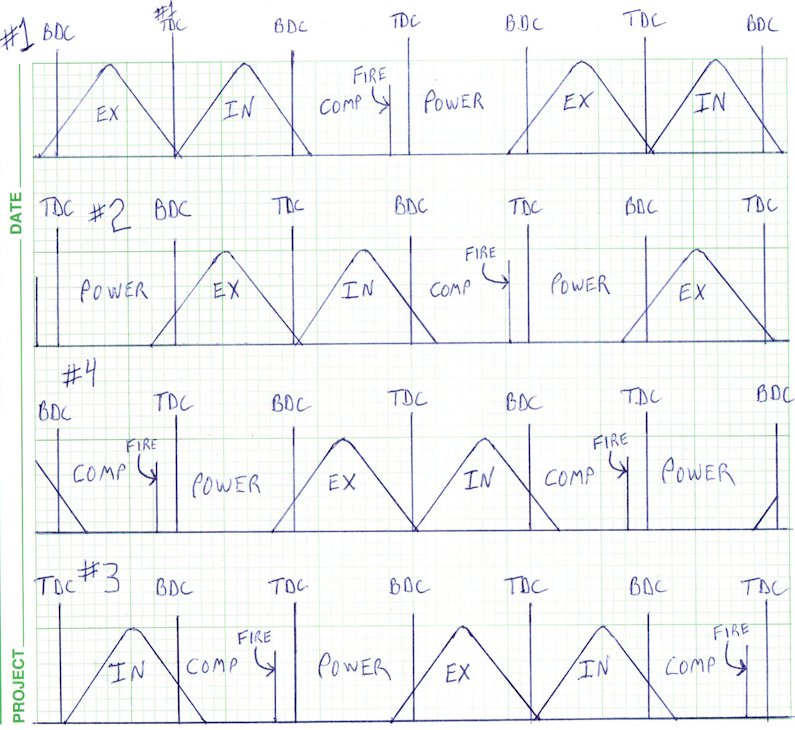 #1 BDC #1 TDC BDC TDC BDC TDC BDC
EX IN COMP FIRE POWER EX IN
TDC #2 BDC TDC BDC TDC BDC TDC
POWER EX IN COMP FIRE POWER EX
#4
BDC TDC BDC TDC BDC TDC BDC
COMP FIRE POWER EX IN COMP FIRE POWER
TDC #3 BDC TDC BDC TDC BDC TDC
IN COMP FIRE POWER EX IN COMP FIRE
DATE
PROJECT